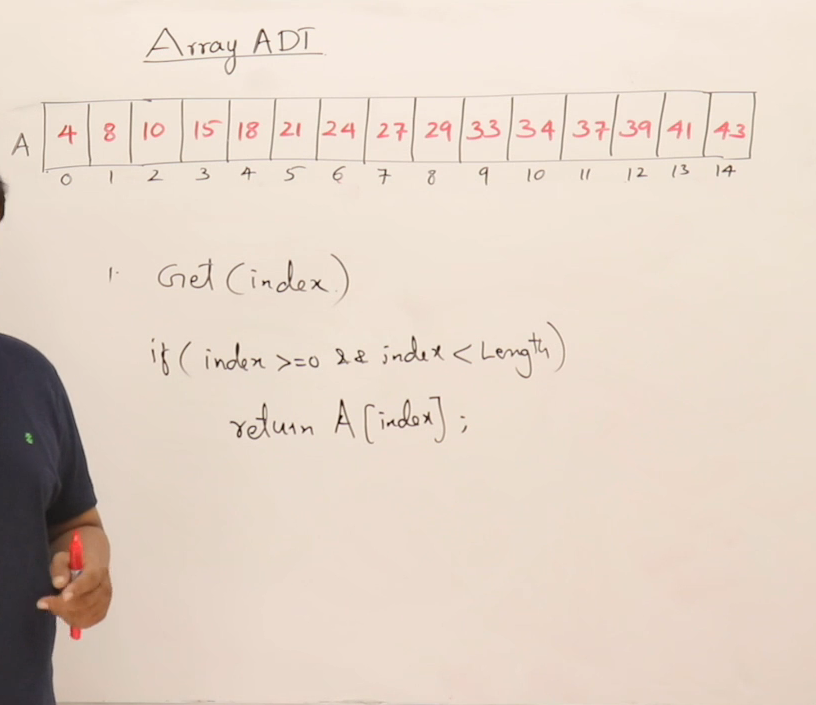 Array ADT
A 4 8 10 15 18 21 24 27 29 33 34 37 39 41 43
0 1 2 3 4 5 6 7 8 9 10 11 12 13 14
1. Get (index)
if ( index >=0 && index < Length)
return A [index] ;